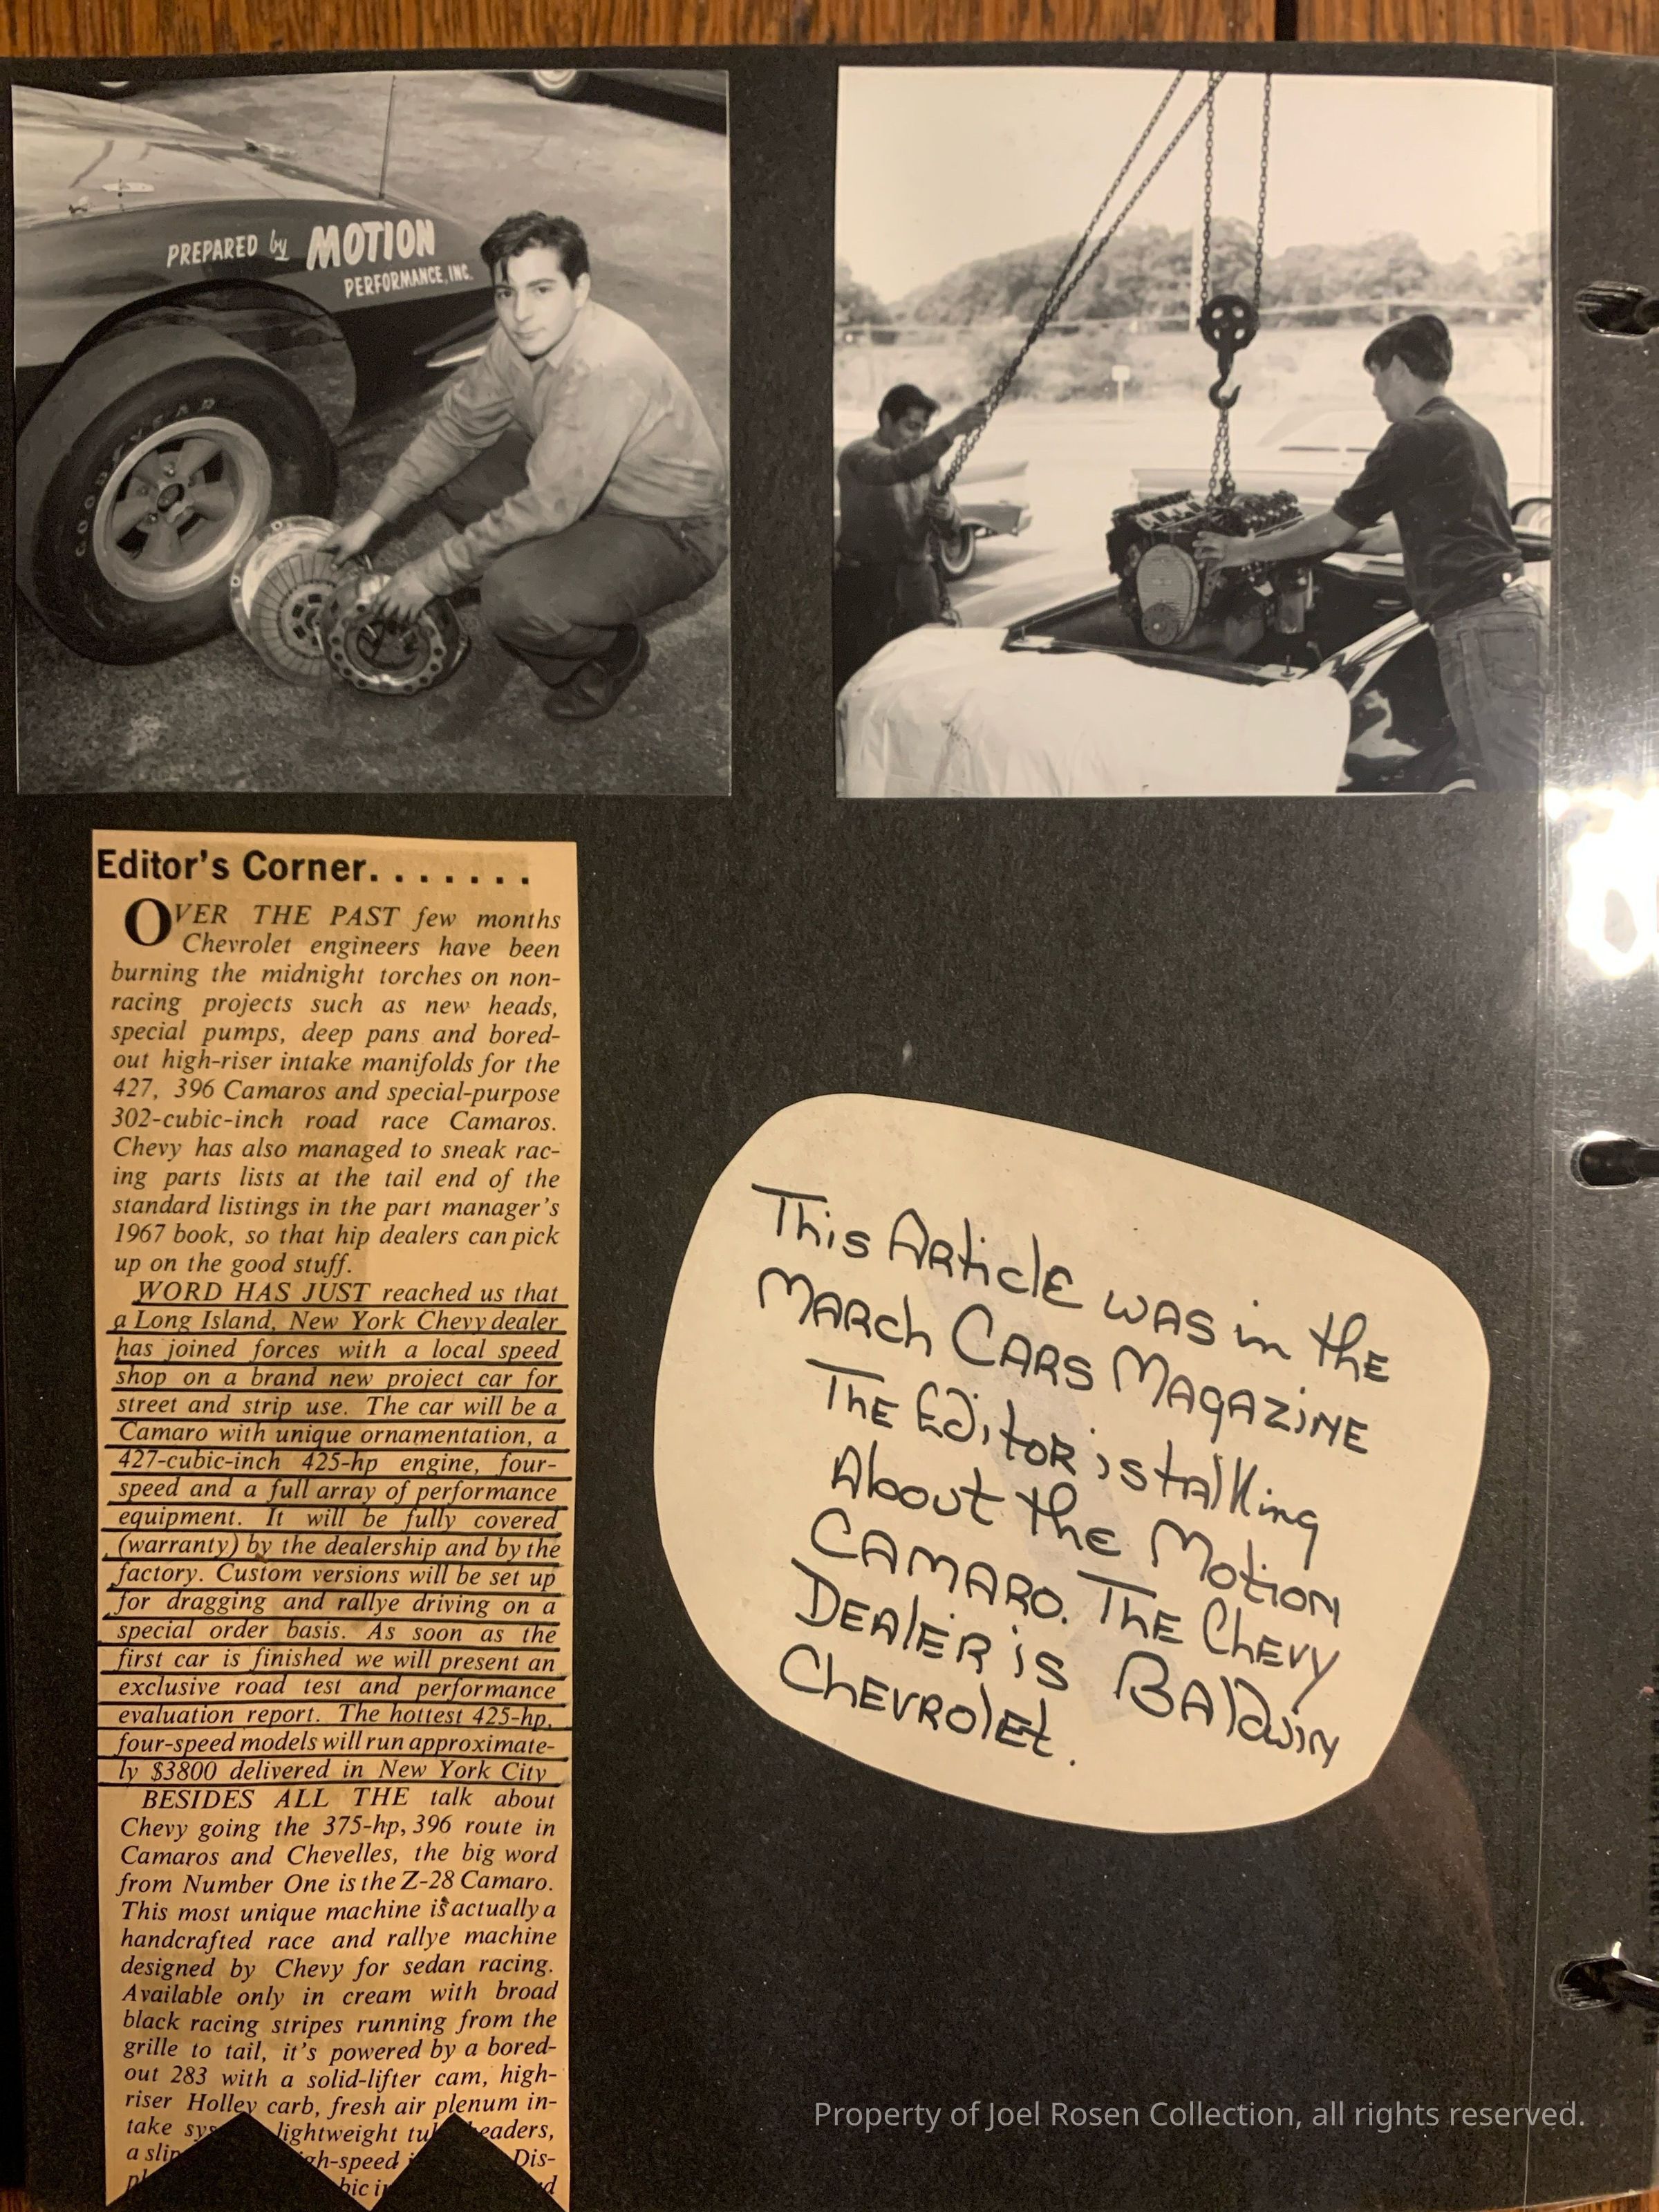 PREPARED by MOTION
PERFORMANCE, INC.
GOODYEAR
Editor's Corner. . . . . . .
OVER THE PAST few months
Chevrolet engineers have been
burning the midnight torches on non-
racing projects such as new heads,
special pumps, deep pans and bored-
out high-riser intake manifolds for the
427, 396 Camaros and special-purpose
302-cubic-inch road race Camaros.
Chevy has also managed to sneak rac-
ing parts lists at the tail end of the
standard listings in the part manager's
1967 book, so that hip dealers can pick
up on the good stuff.
WORD HAS JUST reached us that
a Long Island, New York Chevy dealer
has joined forces with a local speed
shop on a brand new project car for
street and strip use. The car will be a
Camaro with unique ornamentation, a
427-cubic-inch 425-hp engine, four-
speed and a full array of performance
equipment. It will be fully covered
(warranty) by the dealership and by the
factory. Custom versions will be set up
for dragging and rallye driving on a
special order basis. As soon as the
first car is finished we will present an
exclusive road test and performance
evaluation report. The hottest 425-hp,
four-speed models will run approximate-
ly $3800 delivered in New York City
BESIDES ALL THE talk about
Chevy going the 375-hp, 396 route in
Camaros and Chevelles, the big word
from Number One is the Z-28 Camaro.
This most unique machine is actually a
handcrafted race and rallye machine
designed by Chevy for sedan racing.
Available only in cream with broad
black racing stripes running from the
grille to tail, it's powered by a bored-
out 283 with a solid-lifter cam, high-
riser Holley carb, fresh air plenum in-
take lightweight
a
This Article was in the
March Cars Magazine
The Editor is talking
About the Motion
Camaro. The Chevy
Dealer is Baldwin
Chevrolet.
Property of Joel Rosen Collection, all rights reserved.